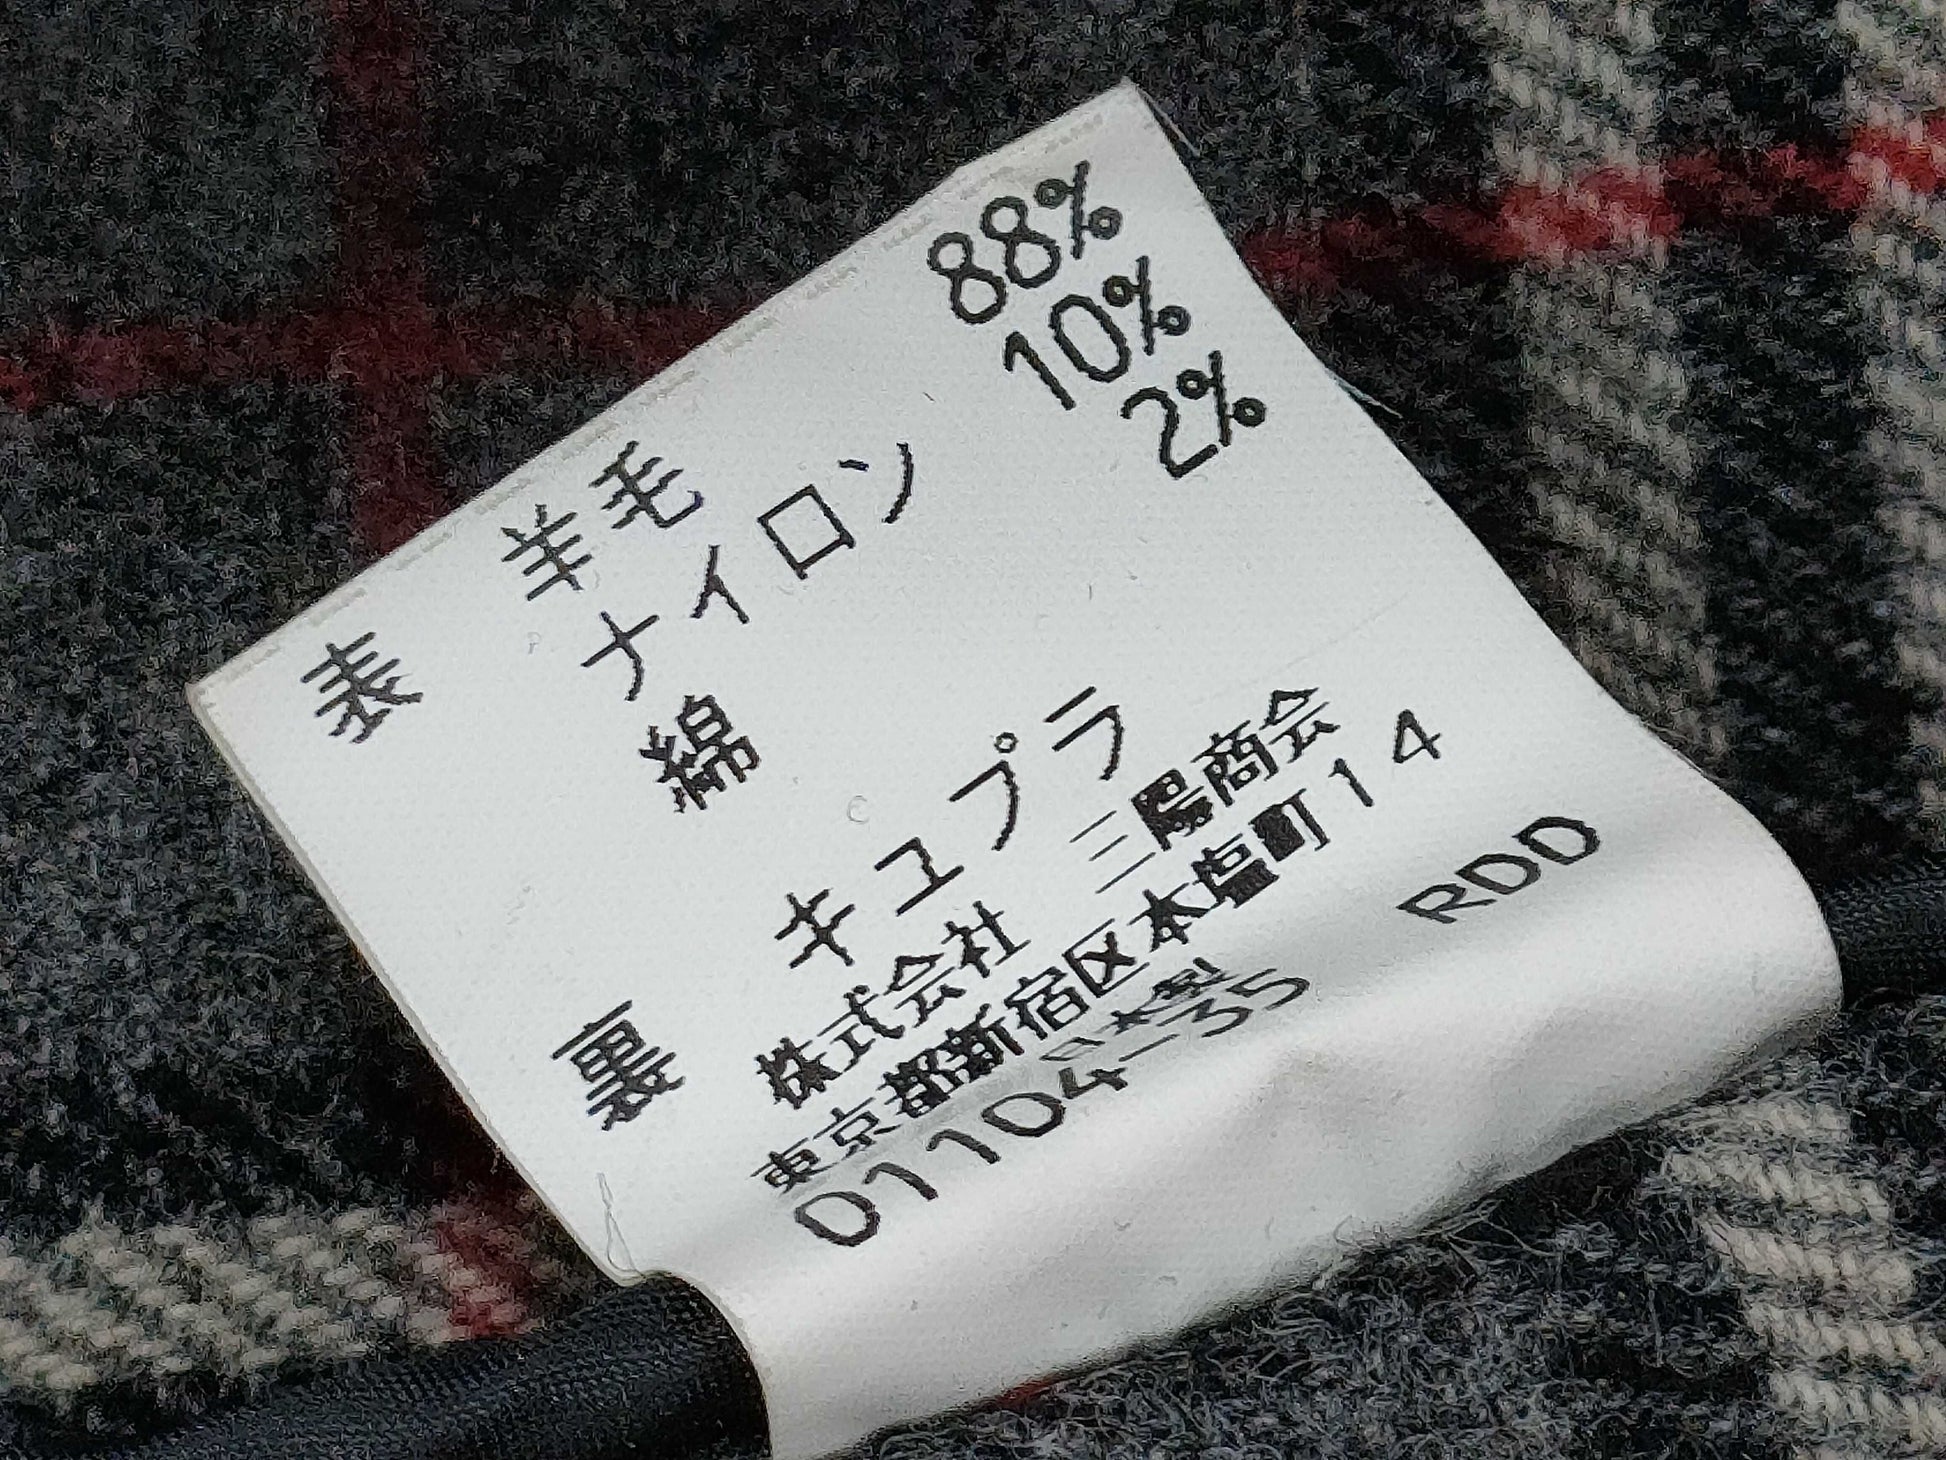 表 羊毛 88%
ナイロン 10%
綿 2%
裏 キュプラ
株式会社 三陽商会
東京都新宿区本塩町14
日本製
01104-35 RDD